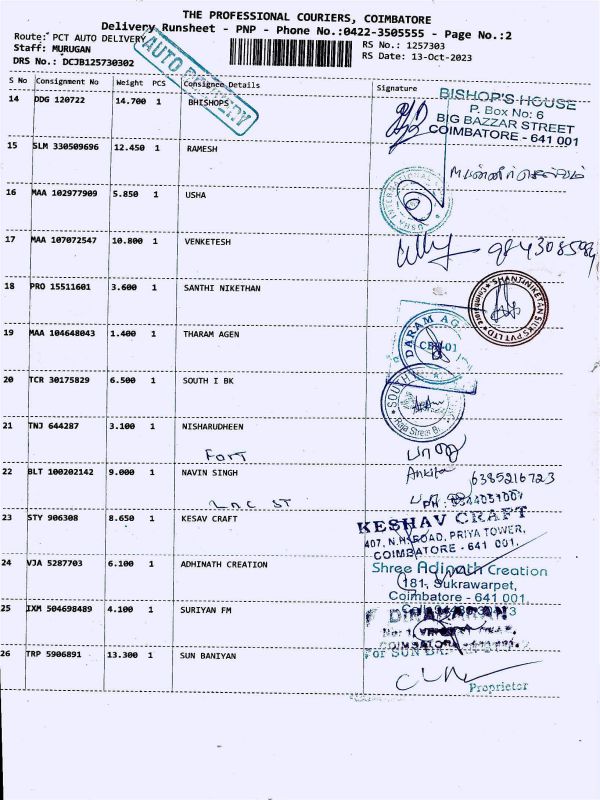 THE PROFESSIONAL COURIERS, COIMBATORE
Delivery Runsheet - PNP - Phone No.:0422-3505555 - Page No.:2
Route: PCT AUTO DELIVERY
RS No.: 1257303
Staff: MURUGAN
RS Date: 13-Oct-2023
DRS No.: DCJB125730302
AUTO DELIVERY
S No Consignment No Weight PCS Consignee Details Signature
14 DDG 120722 14.700 1 BHISHOPS
BISHOP'S HOUSE
P. Box No: 6
BIG BAZZAR STREET
COIMBATORE - 641 001
15 SLM 330509696 12.450 1 RAMESH
16 MAA 102977909 5.850 1 USHA
USHA INTERNATIONAL
17 MAA 107072547 10.800 1 VENKETESH
18 PRO 15511601 3.600 1 SANTHI NIKETHAN
SHANTINIKETAN SILKS PVT LTD
Coimbatore
19 MAA 104648043 1.400 1 THARAM AGEN
DARAM AG
20 TCR 30175829 6.500 1 SOUTH I BK
SOUTH
Raja Street B
21 TNJ 644287 3.100 1 NISHARUDHEEN
Fort
22 BLT 100202142 9.000 1 NAVIN SINGH
Ankita 6385216723
23 STY 906308 8.650 1 KESAV CRAFT
KESHAV CRAFT
407, N.H. ROAD, PRIYA TOWER,
COIMBATORE - 641 001.
24 VJA 5287703 6.100 1 ADHINATH CREATION
Shree Adinath Creation
181, Sukrawarpet,
Coimbatore - 641 001
25 IXM 504698489 4.100 1 SURIYAN FM
26 TRP 5906891 13.300 1 SUN BANIYAN
For SUN
Proprietor